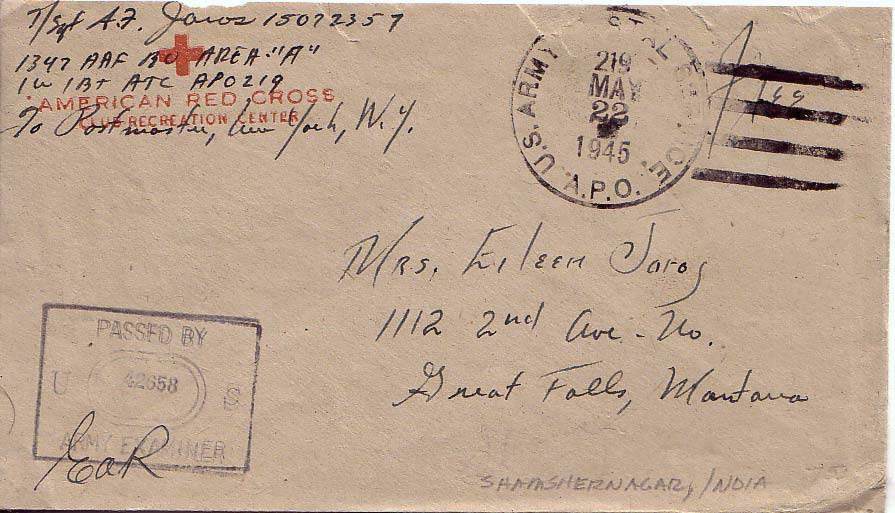 T/Sgt A.F. Jaros 15072357
1347 AAF BU AREA "A"
IW IBT ATC APO 219
AMERICAN RED CROSS
CLUB RECREATION CENTER
To Postmaster, New York, N.Y.
U.S. ARMY POSTAL SERVICE
219
MAY
22
1945
A.P.O.
Free
Mrs. Eileen Jaros
1112 2nd Ave - No.
Great Falls, Montana
PASSED BY
U 42658 S
ARMY EXAMINER
EaR
SHAMSHERNAGAR, INDIA